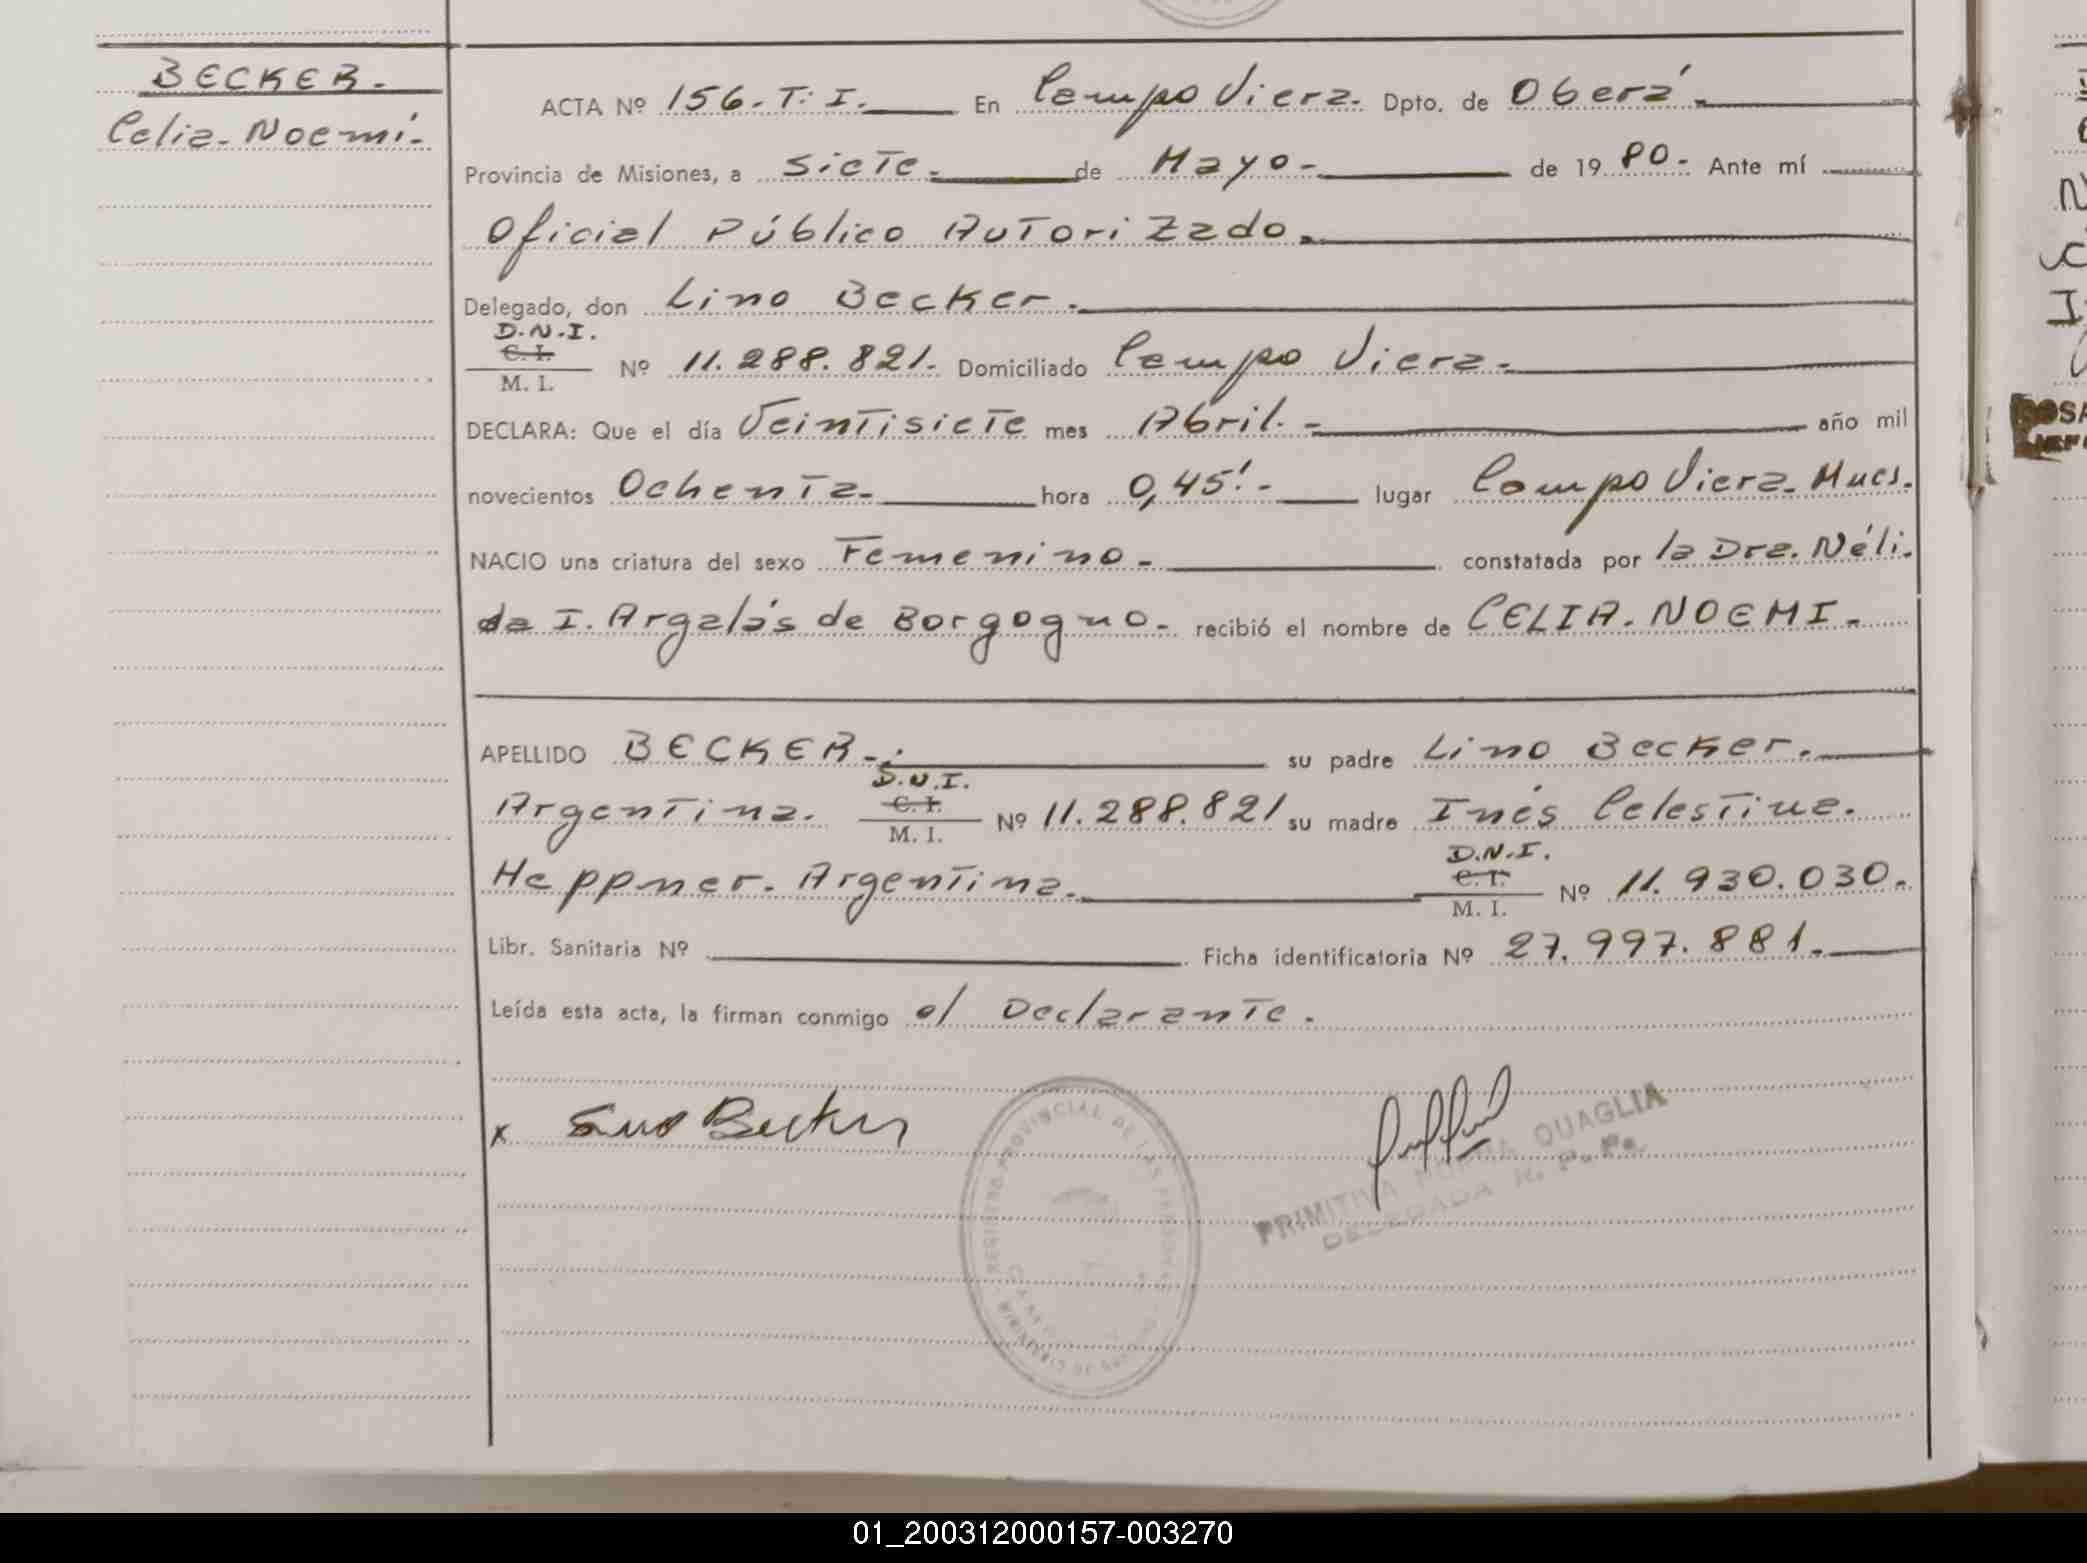 BECKER.
Celia. Noemí.
ACTA Nº 156. T. I. En Campo Viera. Dpto. de Oberá.
Provincia de Misiones, a siete. de Mayo. de 19 80. Ante mí
Oficial Público Autorizado.
Delegado, don Lino Becker.
D.N.I.
C. I.
M. I.
Nº 11.288.821. Domiciliado Campo Viera.
DECLARA: Que el día Veintisiete mes Abril. año mil
novecientos Ochenta. hora 0,45'. lugar Campo Viera. Mnes.
NACIO una criatura del sexo Femenino. constatada por la Dra. Néli-
da I. Argalás de Borgogno. recibió el nombre de CELIA. NOEMI.
APELLIDO BECKER. su padre Lino Becker.
D.N.I.
Argentina. C. I. M. I. Nº 11.288.821 su madre Inés Celestina.
D.N.I.
Heppner. Argentina. C. I. M. I. Nº 11.930.030.
Libr. Sanitaria Nº Ficha identificatoria Nº 27.997.881.
Leída esta acta, la firman conmigo el Declarante.
x Lino Becker
REGISTRO PROVINCIAL DE LAS PERSONAS
PRIMITIVA NORMA QUAGLIA
DELEGADA R. P. P.
01_200312000157-003270